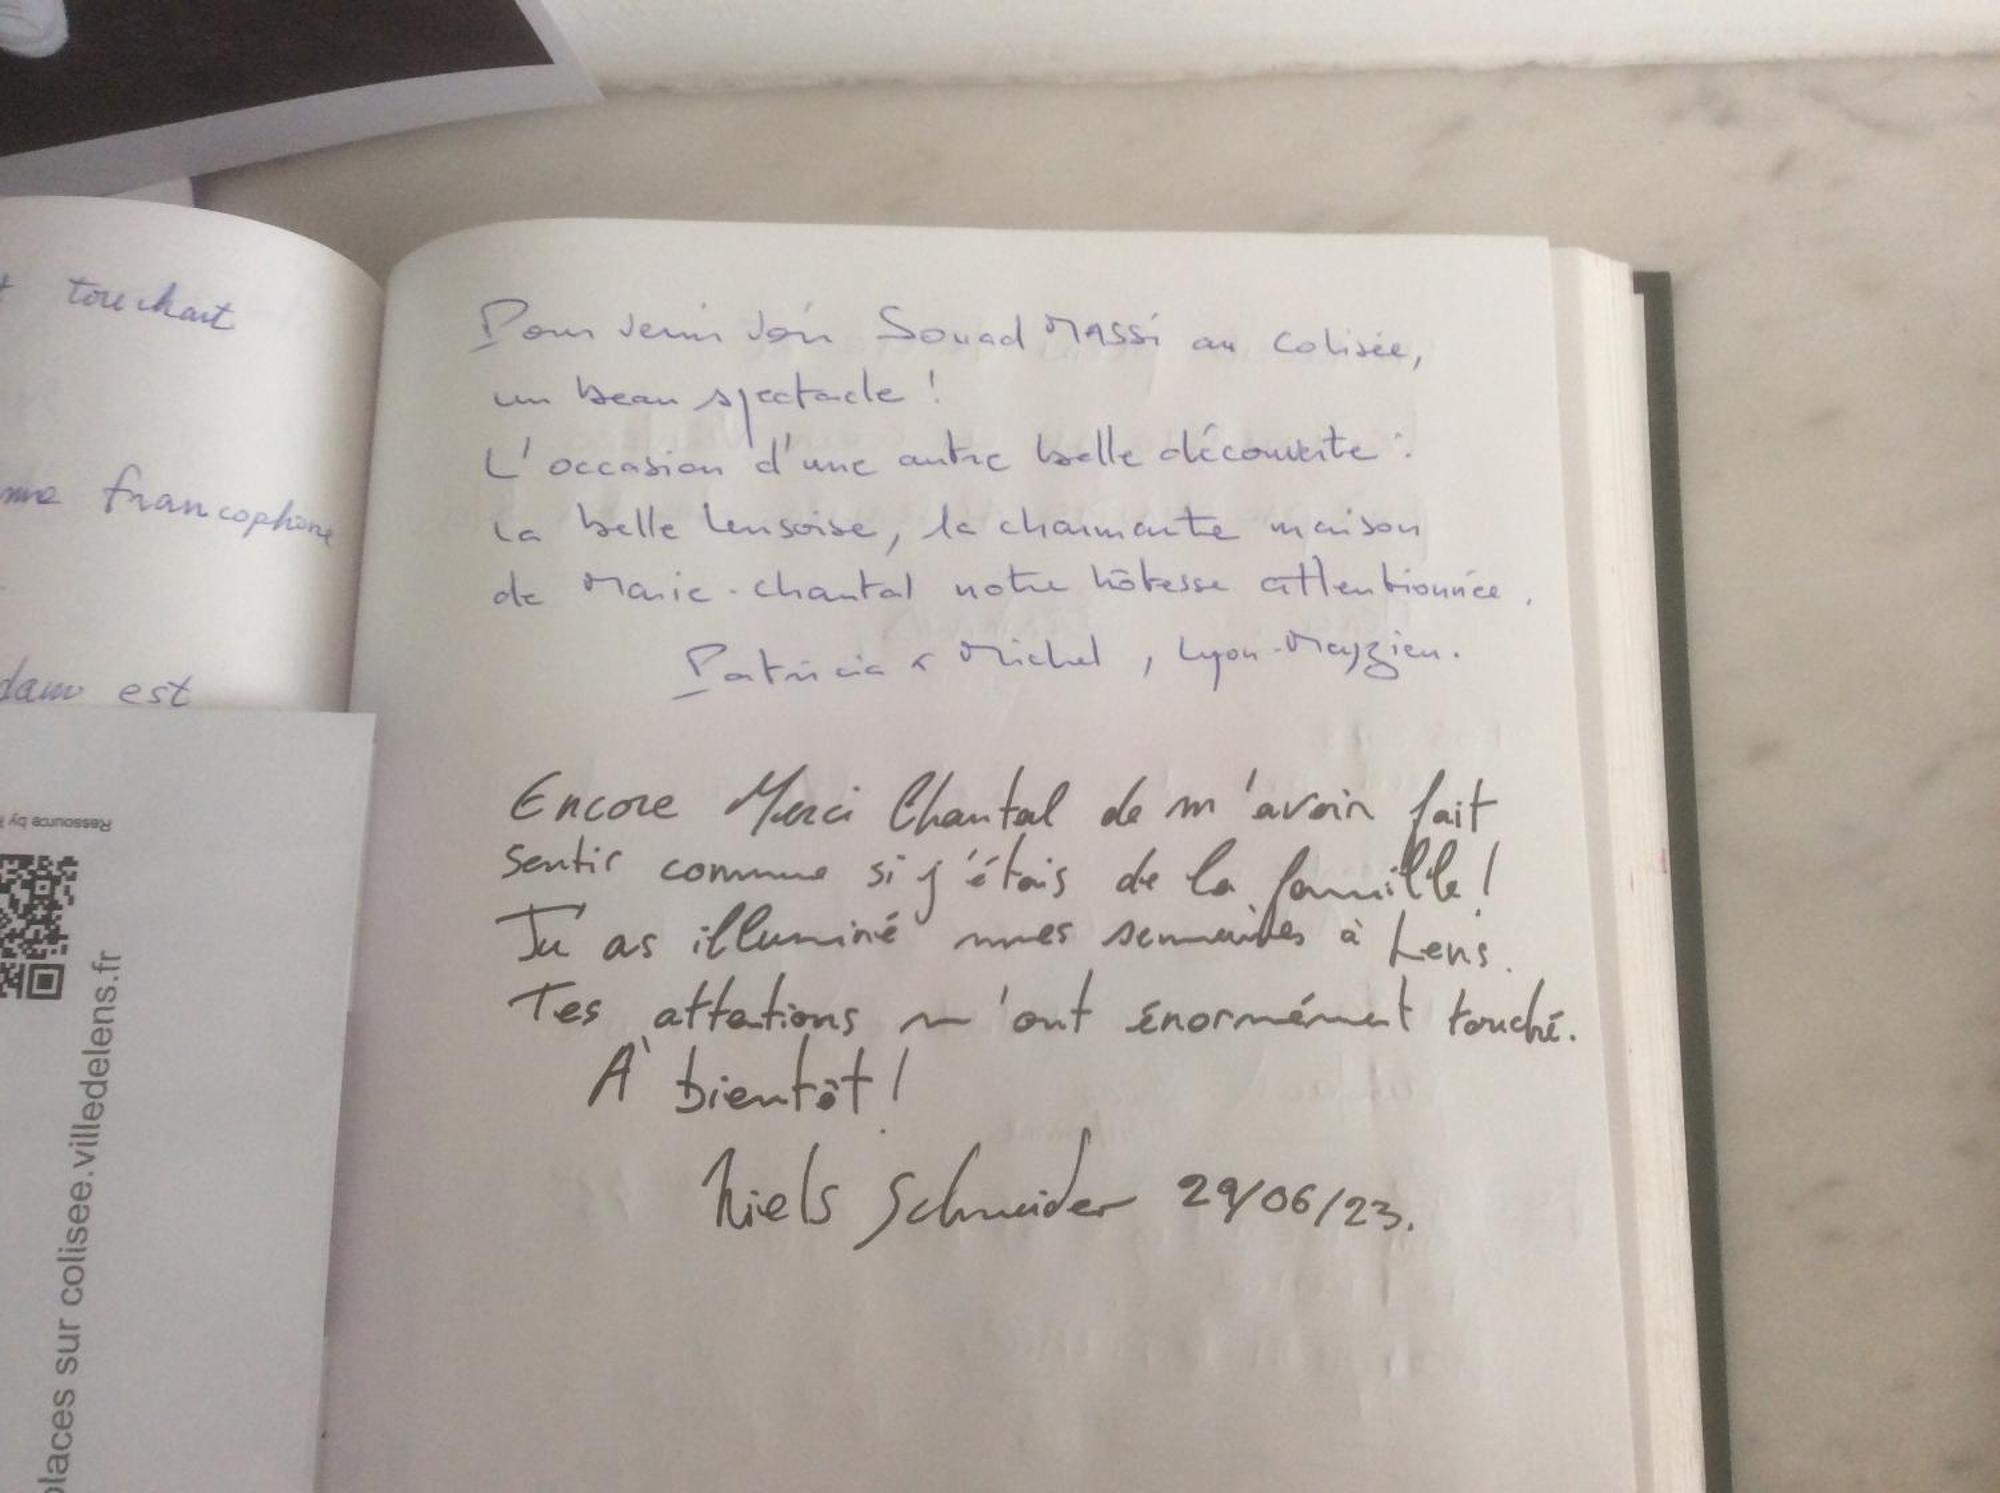 touchant
francophone
est
Pour venir voir Souad MASSI au Colisée,
un beau spectacle !
L'occasion d'une autre belle découverte :
la belle lensoise, la charmante maison
de Marie-Chantal notre hôtesse attentionnée.
Patricia & Michel, Lyon-Meyzieu.
Encore Merci Chantal de m'avoir fait
sentir comme si j'étais de la famille !
Tu as illuminé mes semaines à Lens.
Tes attentions m'ont énormément touché.
À bientôt !
Niels Schneider 29/06/23.
Ressource by
places sur colisee.villedelens.fr